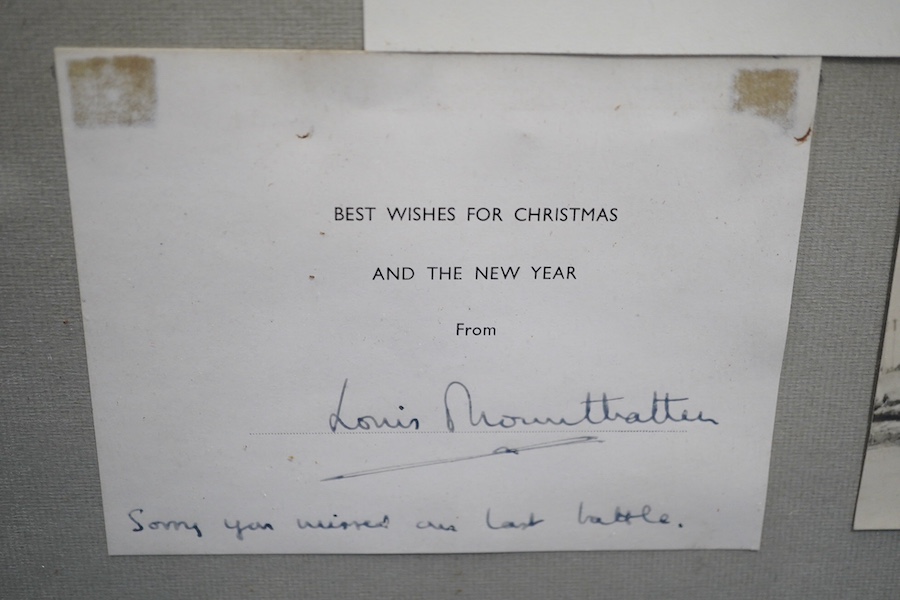 BEST WISHES FOR CHRISTMAS
AND THE NEW YEAR
From
Louis Mountbatten
Sorry you missed our last battle.